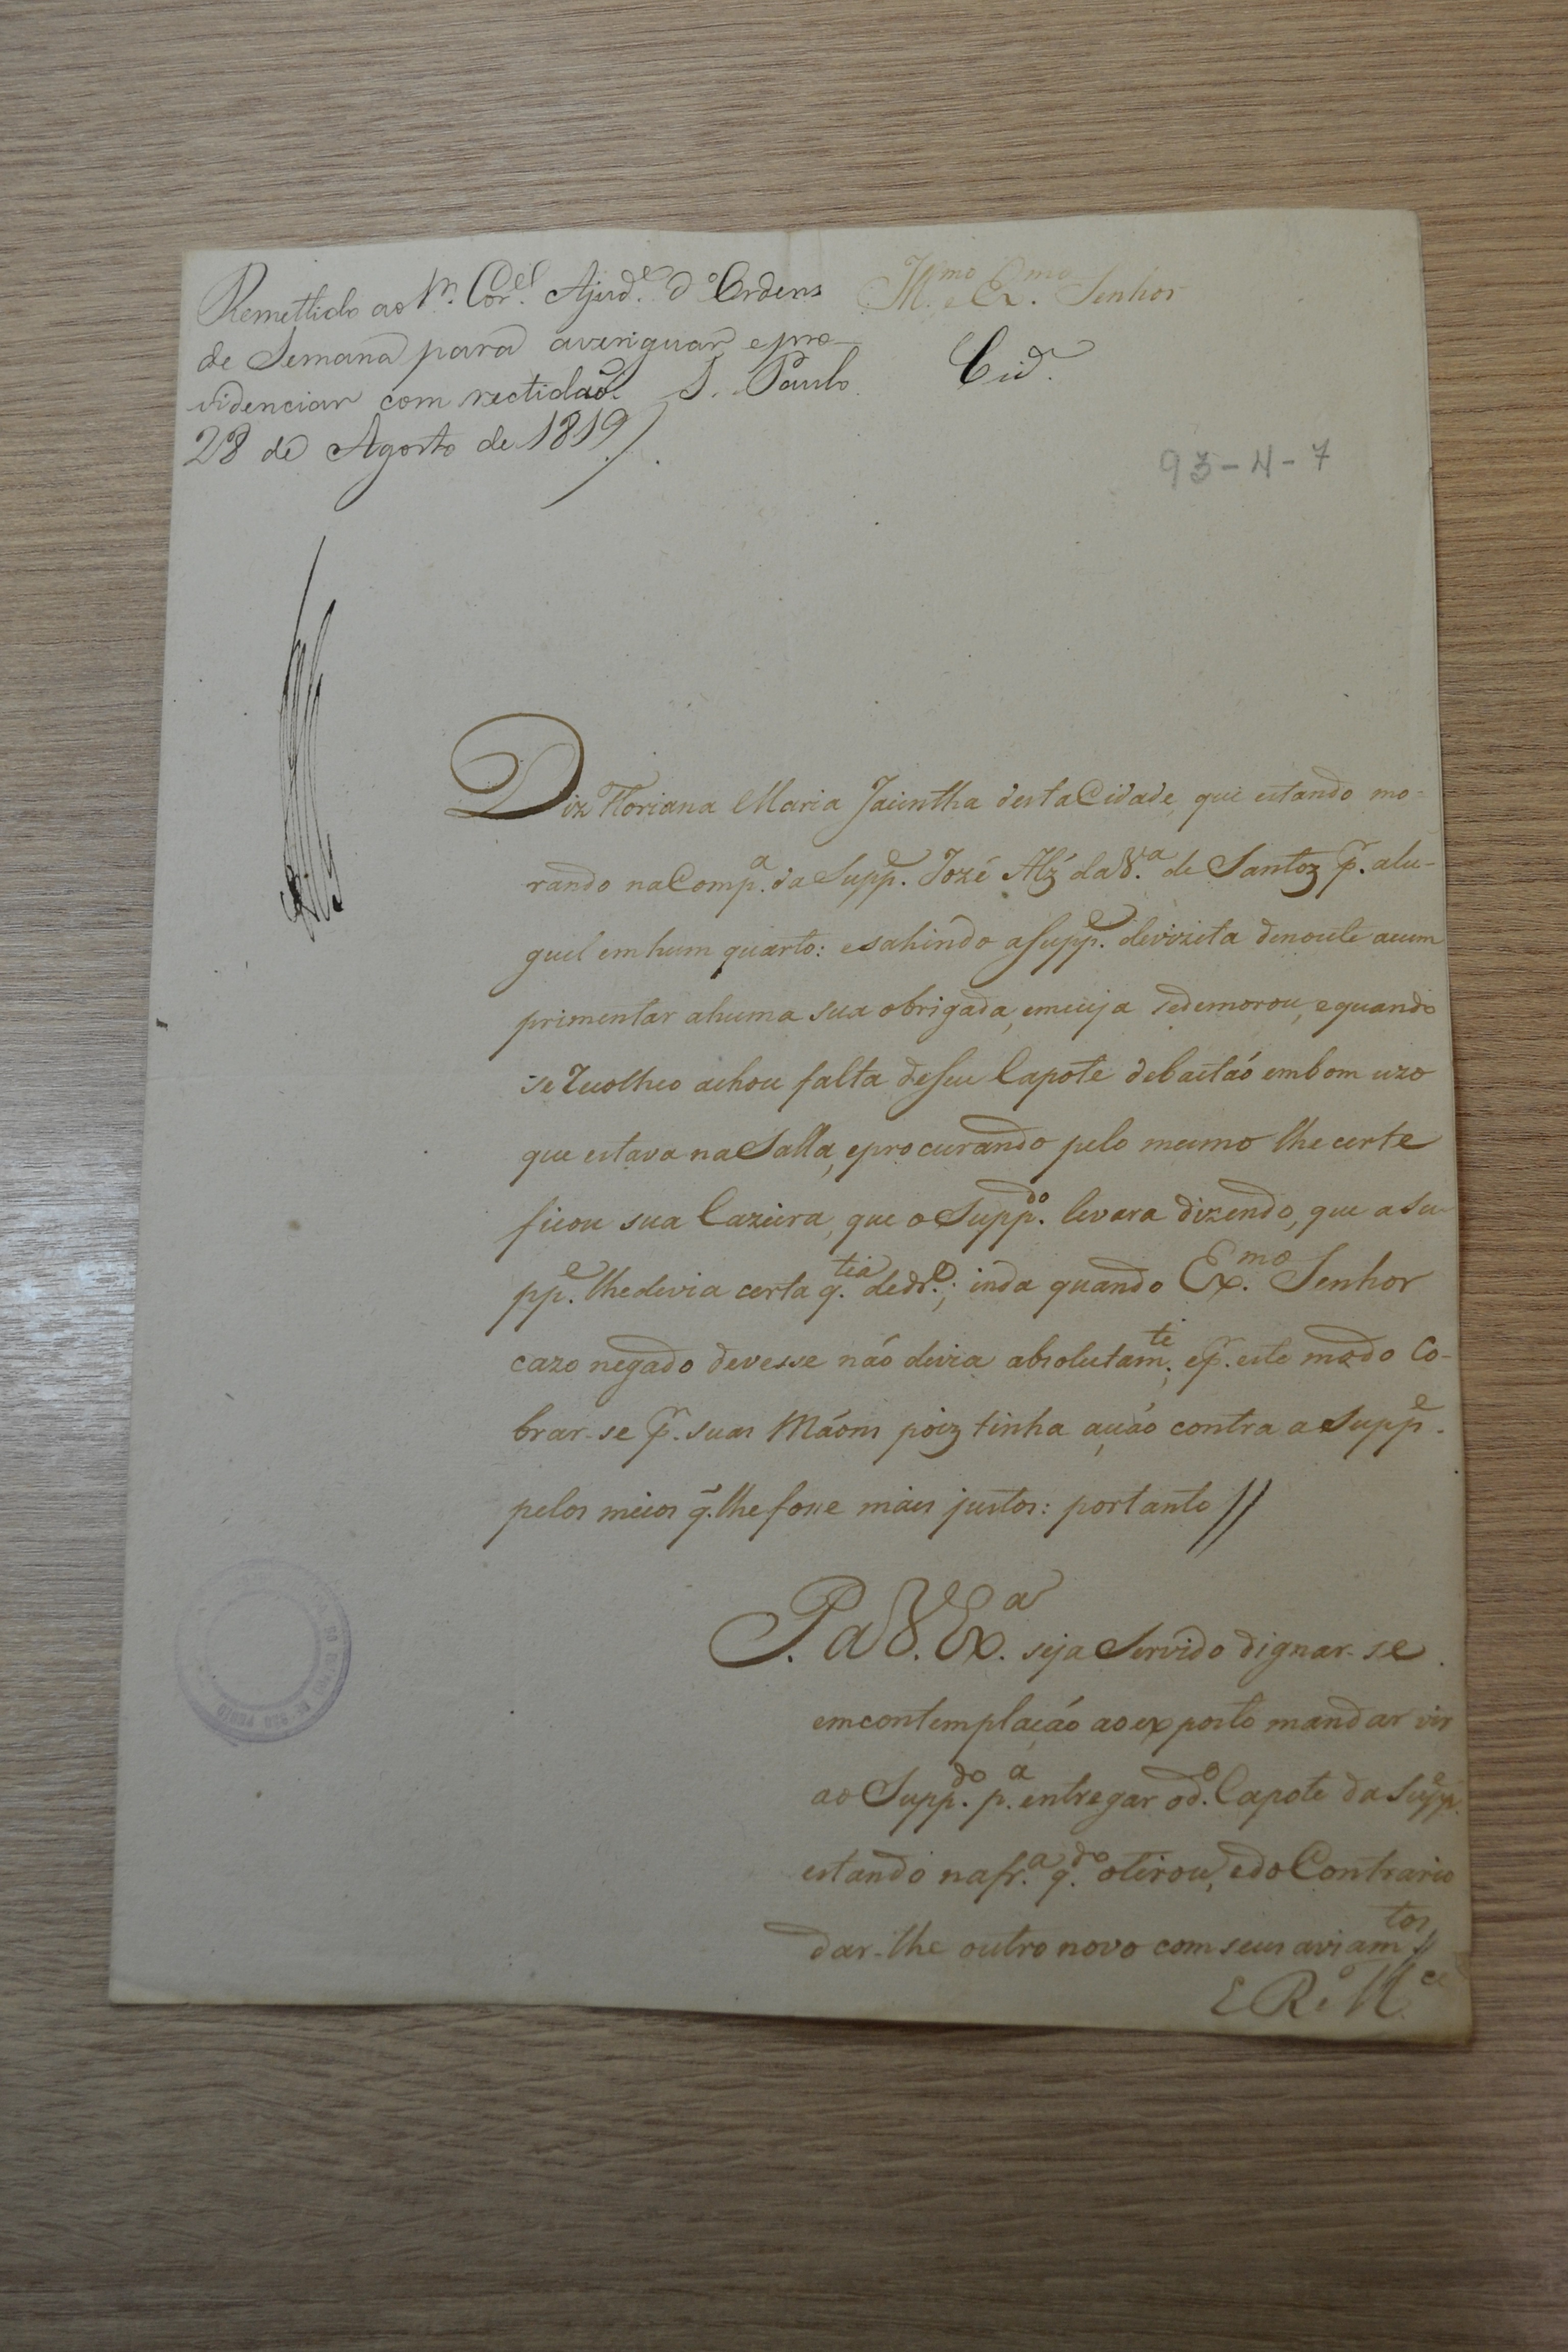 Remettido ao Sr. Cor.el Ajud.e d'Ordens
de Semana para averiguar, e pro-
videnciar com rectidaõ. S. Paulo
28 de Agosto de 1819
Ill.mo e Ex.mo Senhor
Cid.e
93-4-7
Diz Floriana Maria Jacintha desta Cidade, que estando mo-
rando na Comp.a da Supp.e Jozé Alz' da V.a de Santoz p.r alu-
guel em hum quarto: e sahindo a Supp.e de vizita de noute a cum
primentar a huma sua obrigada, em cuja se demorou, e quando
se recolheo achou falta de seu Capote de baetáo em bom uzo
que estava na Salla, e procurando pelo mesmo lhe certe
ficou sua Cazeira, que o Supp.do levara dizendo, que a Su-
pp.e lhe devia certa q.tia de dr.o; inda quando Ex.mo Senhor
cazo negado devesse náo devia absolutam.te, e p.r este modo Co-
brar-se p.r suas Máons poiz tinha auçáo contra a Supp.e
pelos meios q̃. lhe fosse mais justos: portanto //
P. a V. Ex.a seja Servido dignar-se
em contemplaçáo ao exposto mandar vir
ao Supp.do p.a entregar o d.o Capote da Supp.e
estando na fr.a q.do o tirou, e do Contrario
dar-lhe outro novo com seus aviam.tos //
E R. M.ce